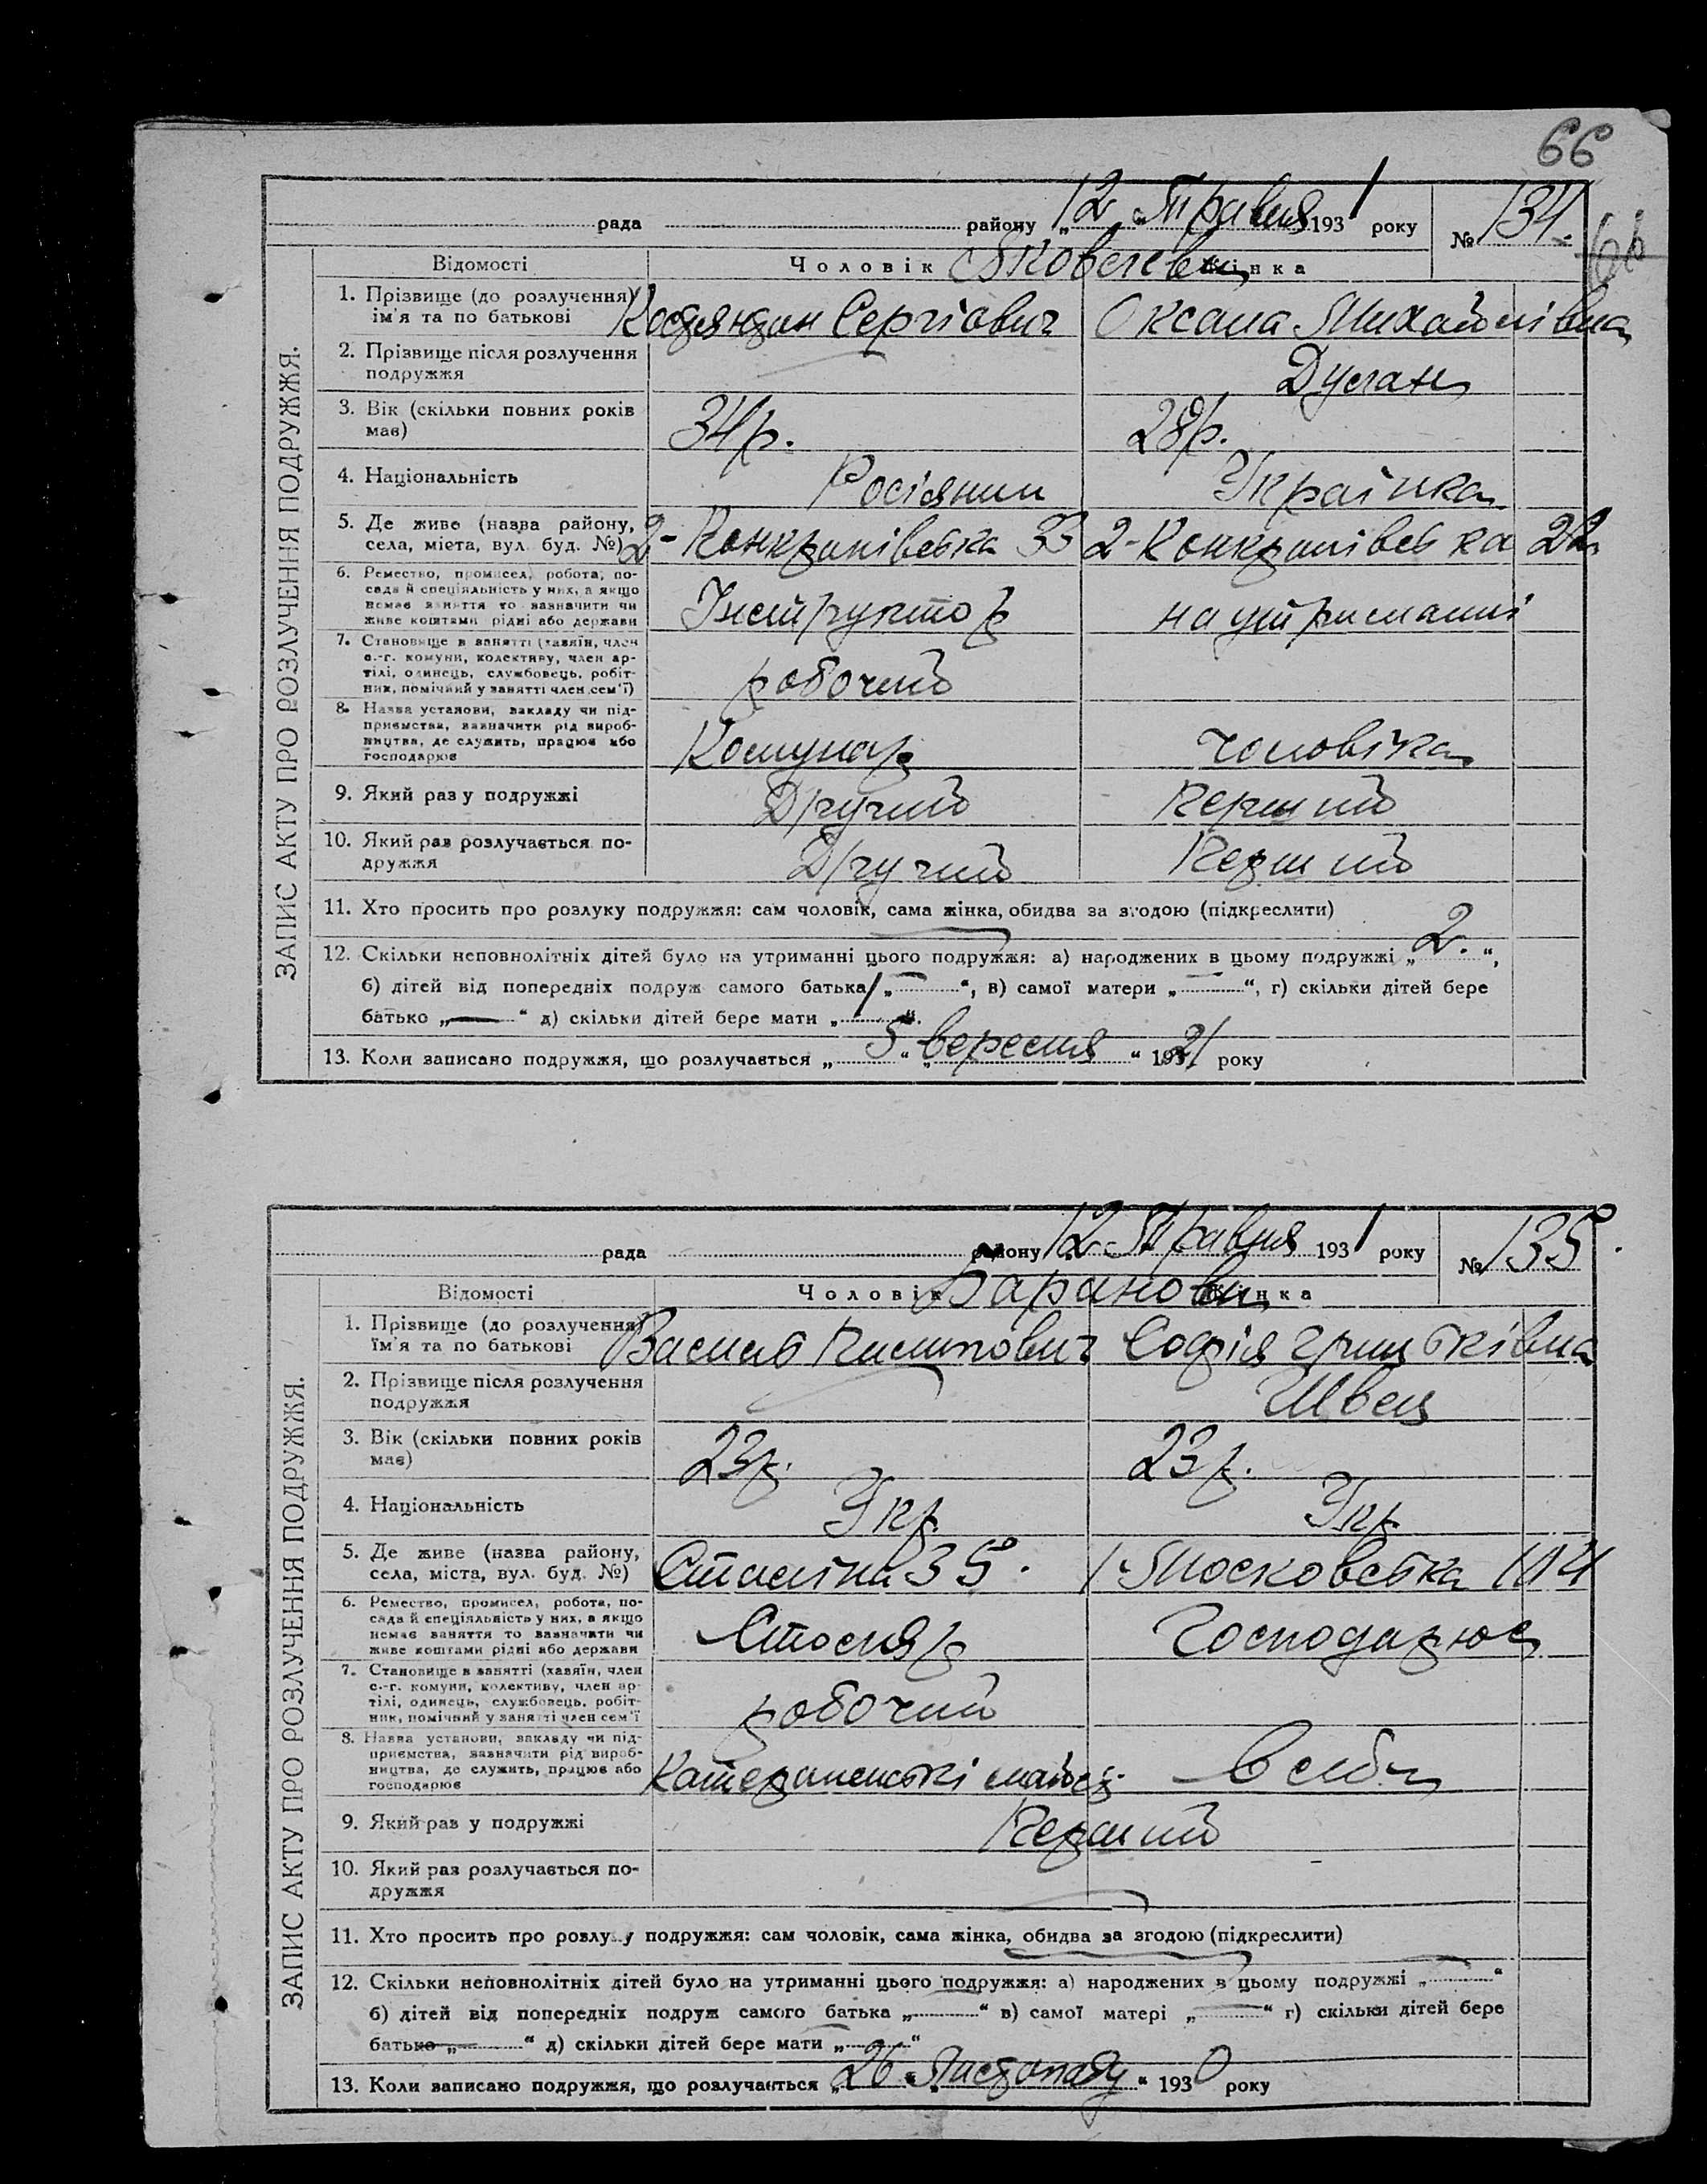 66
рада району „12 „Травня 1931 року № 134.
66
ЗАПИС АКТУ ПРО РОЗЛУЧЕННЯ ПОДРУЖЖЯ.
Відомості Чоловік Жінка
Яковлеви
1. Прізвище (до розлучення) ім'я та по батькові Костянтин Сергіович Оксана Михайлівна
2. Прізвище після розлучення подружжя Дуган
3. Вік (скільки повних років має) 34 р. 28 р.
4. Національність Росіянин Українка
5. Де живе (назва району, села, міста, вул. буд. №) 2- 33 2-
6. Ремество, промисел, робота, посада й спеціяльність у них, а якщо немає заняття то зазначити чи живе коштами рідні або держави Інструктор на утриманні
7. Становище в занятті (хазяїн, член с.-г. комуни, колективу, член артілі, одинець, службовець, робітник, помічний у занятті член сем'ї) робочий
8. Назва установи, закладу чи підприємства, зазначити рід виробництва, де служить, працює або господарює Комунар чоловіка
9. Який раз у подружжі Другий Перший
10. Який раз розлучається подружжя Другий Перший
11. Хто просить про розлуку подружжя: сам чоловік, сама жінка, обидва за згодою (підкреслити)
12. Скільки неповнолітніх дітей було на утриманні цього подружжя: а) народжених в цьому подружжі „2.“,
б) дітей від попередніх подруж самого батька „—“, в) самої матери „—“, г) скільки дітей бере
батько „—“ д) скільки дітей бере мати „ “.
13. Коли записано подружжя, що розлучається „5“ „вересня“ 1921 року
рада району 12 Травня 1931 року № 135.
ЗАПИС АКТУ ПРО РОЗЛУЧЕННЯ ПОДРУЖЖЯ.
Відомості Чоловік Жінка
Баранови
1. Прізвище (до розлучення) їм'я та по батькові Василь Пилипович Софія Грицьківна
2. Прізвище після розлучення подружжя Швец
3. Вік (скільки повних років має) 23 р. 23 р.
4. Національність Укр Укр
5. Де живе (назва району, села, міста, вул. буд. №) Сталіна 35. 1 Московська
6. Ремество, промисел, робота, посада й спеціяльність у них, а якщо немає заняття то зазначати чи живе коштами рідні або держави Столяр Господарює
7. Становище в занятті (хазяїн, член с.-г. комуни, колективу, член артілі, одинець, службовець, робітник, помічний у занятті член сем'ї робочий
8. Назва установи, закладу чи підприємства, зазначити рід виробництва, де служить, працює або господарює в себе
9. Який раз у подружжі Перший
10. Який раз розлучається подружжя
11. Хто просить про розлуку подружжя: сам чоловік, сама жінка, обидва за згодою (підкреслити)
12. Скільки неповнолітніх дітей було на утриманні цього подружжя: а) народжених в цьому подружжі „—“
б) дітей від попередніх подруж самого батька „—“ в) самої матері „—“ г) скільки дітей бере
батько „—“ д) скільки дітей бере мати „—“
13. Коли записано подружжя, що розлучається „26“ „Листопаду“ 1930 року